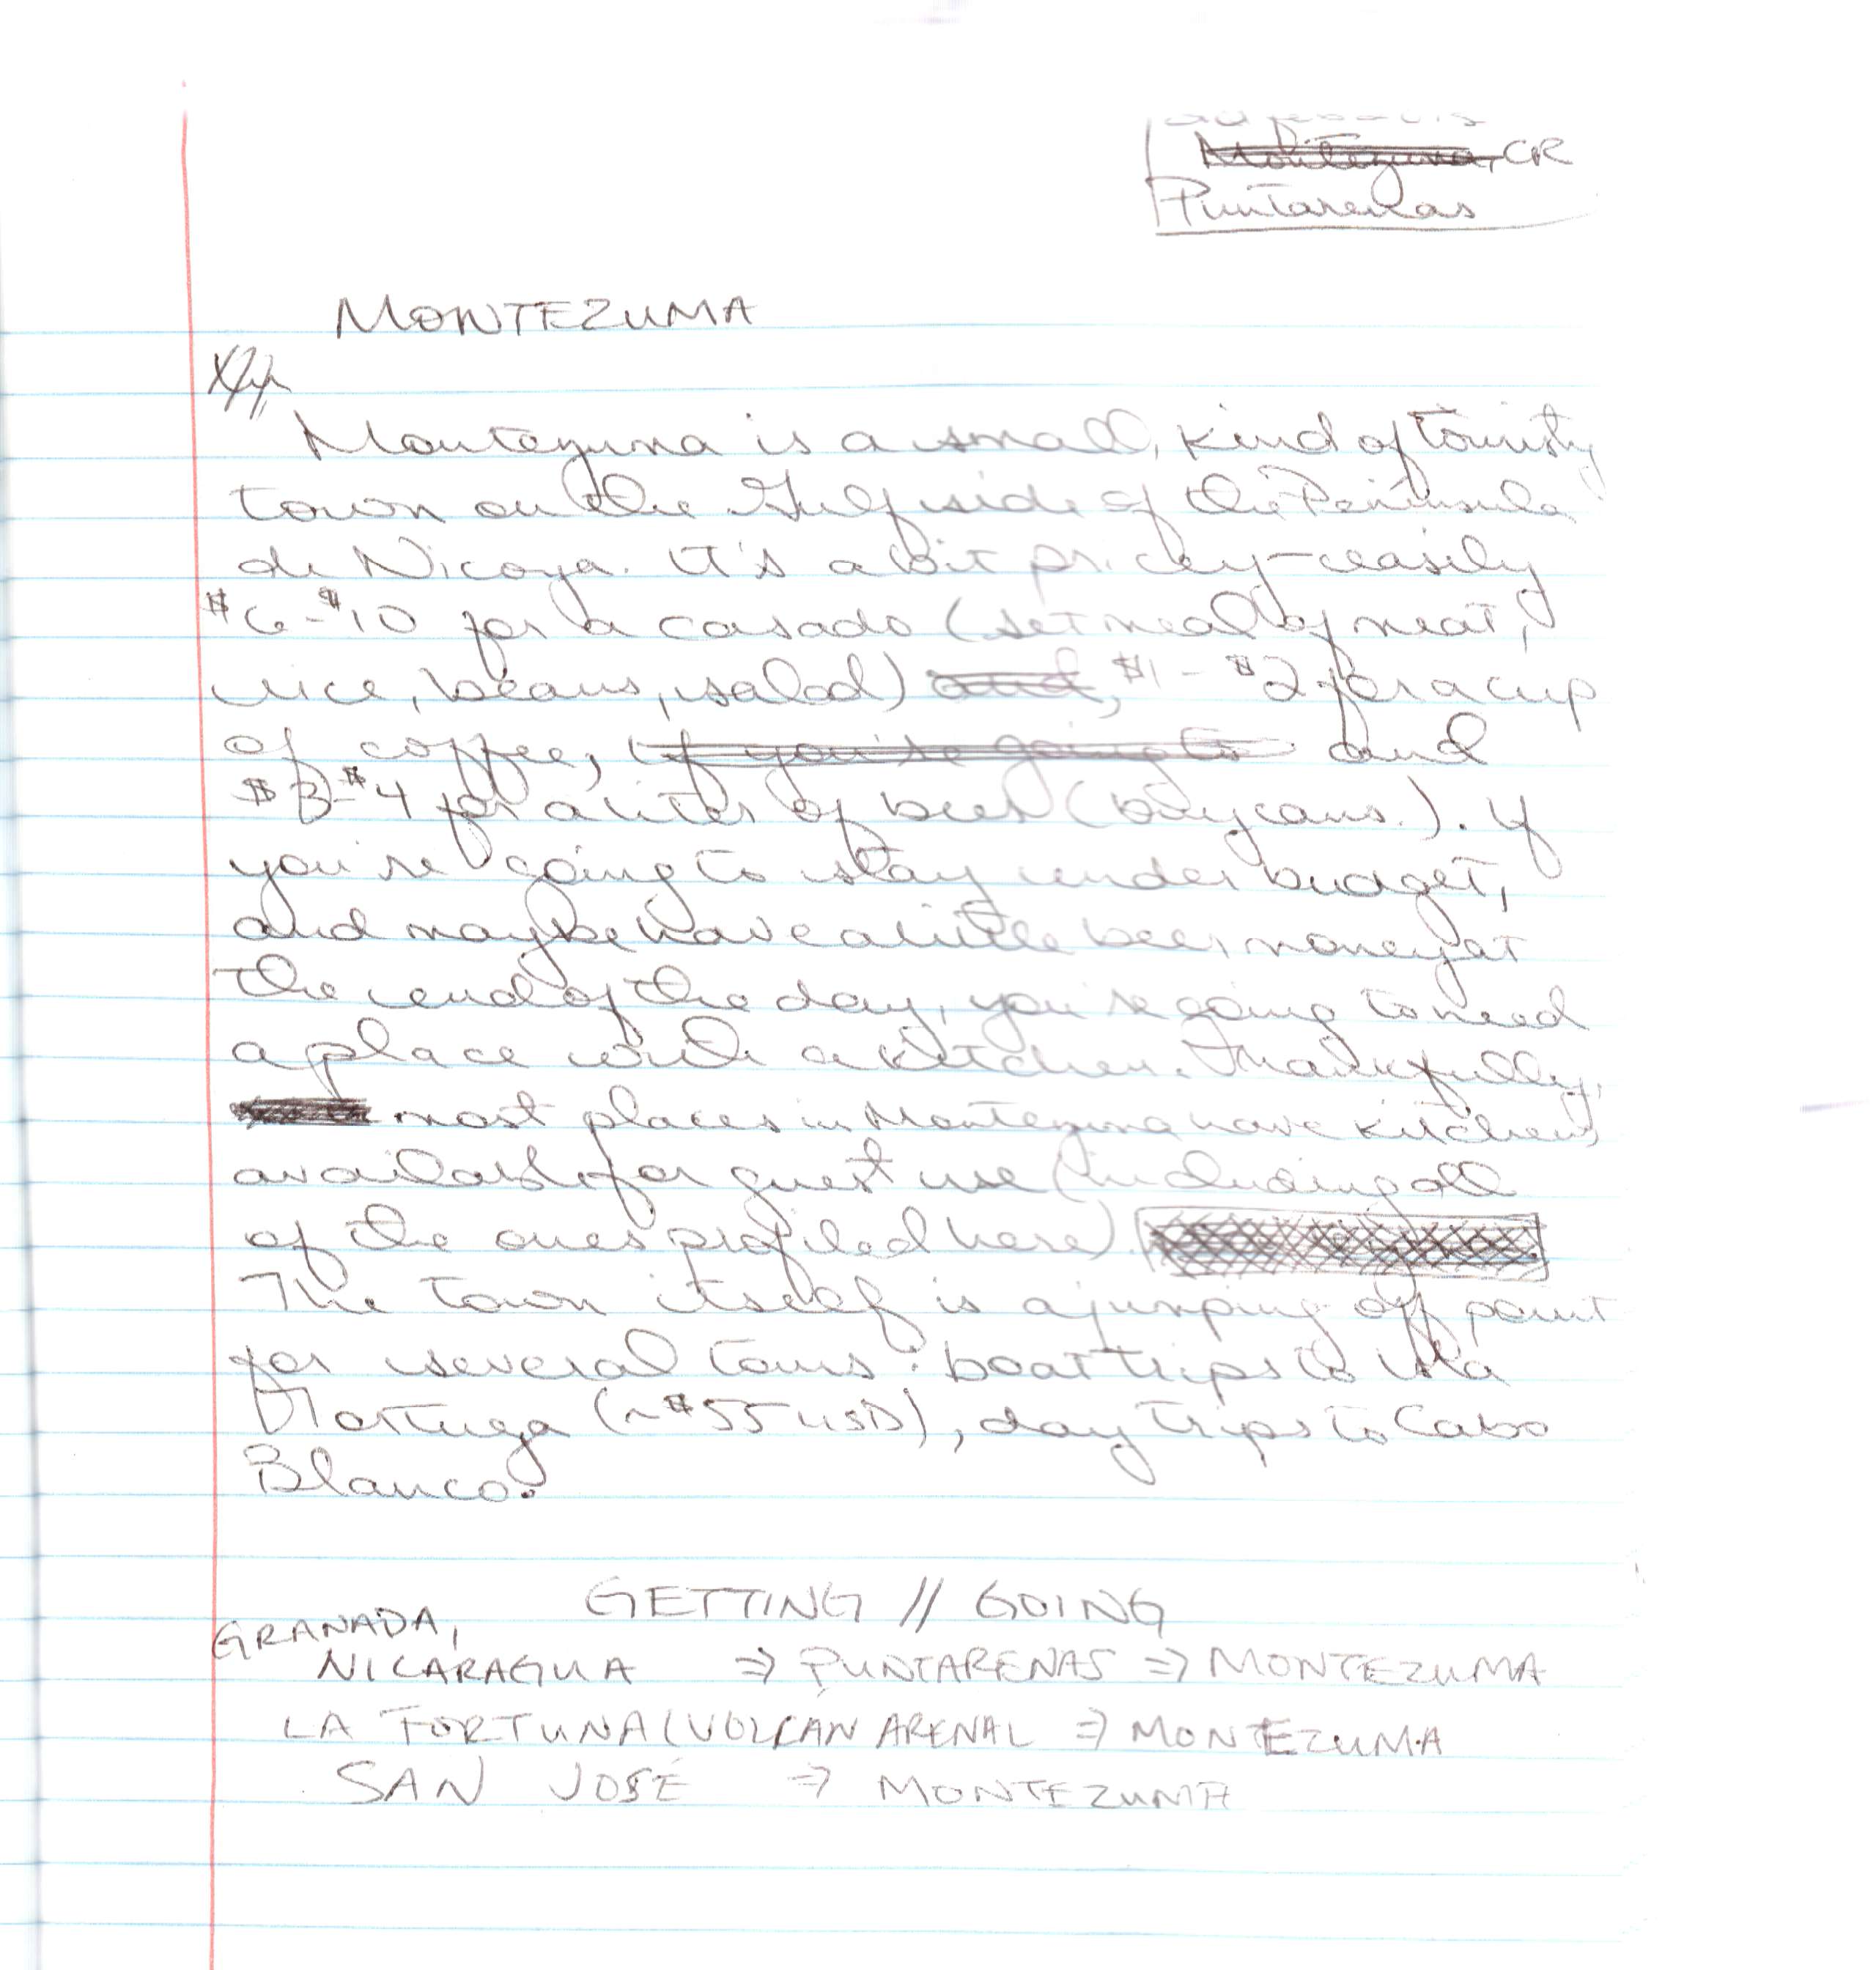 Montezuma, CR
Puntarenas
MONTEZUMA
Montezuma is a small, kind of touristy
town on the Gulf side of the Peninsula
de Nicoya. It's a bit pricey - easily
$6-$10 for a casado (set meal of meat,
rice, beans, salad) and, $1-$2 for a cup
of coffee, if you're going to and
$3-$4 for a liter of beer (buy cans.). If
you're going to stay under budget,
and maybe have a little beer money at
the end of the day, you're going to need
a place with a kitchen. Thankfully,
most places in Montezuma have kitchens
available for guest use (including all
of the ones profiled here).
The town itself is a jumping off point
for several tours: boat trips to Isla
Tortuga (~$55 USD), day trips to Cabo
Blanco.
GETTING // GOING
GRANADA,
NICARAGUA ⇒ PUNTARENAS ⇒ MONTEZUMA
LA FORTUNA (VOLCÁN ARENAL ⇒ MONTEZUMA
SAN JOSÉ ⇒ MONTEZUMA